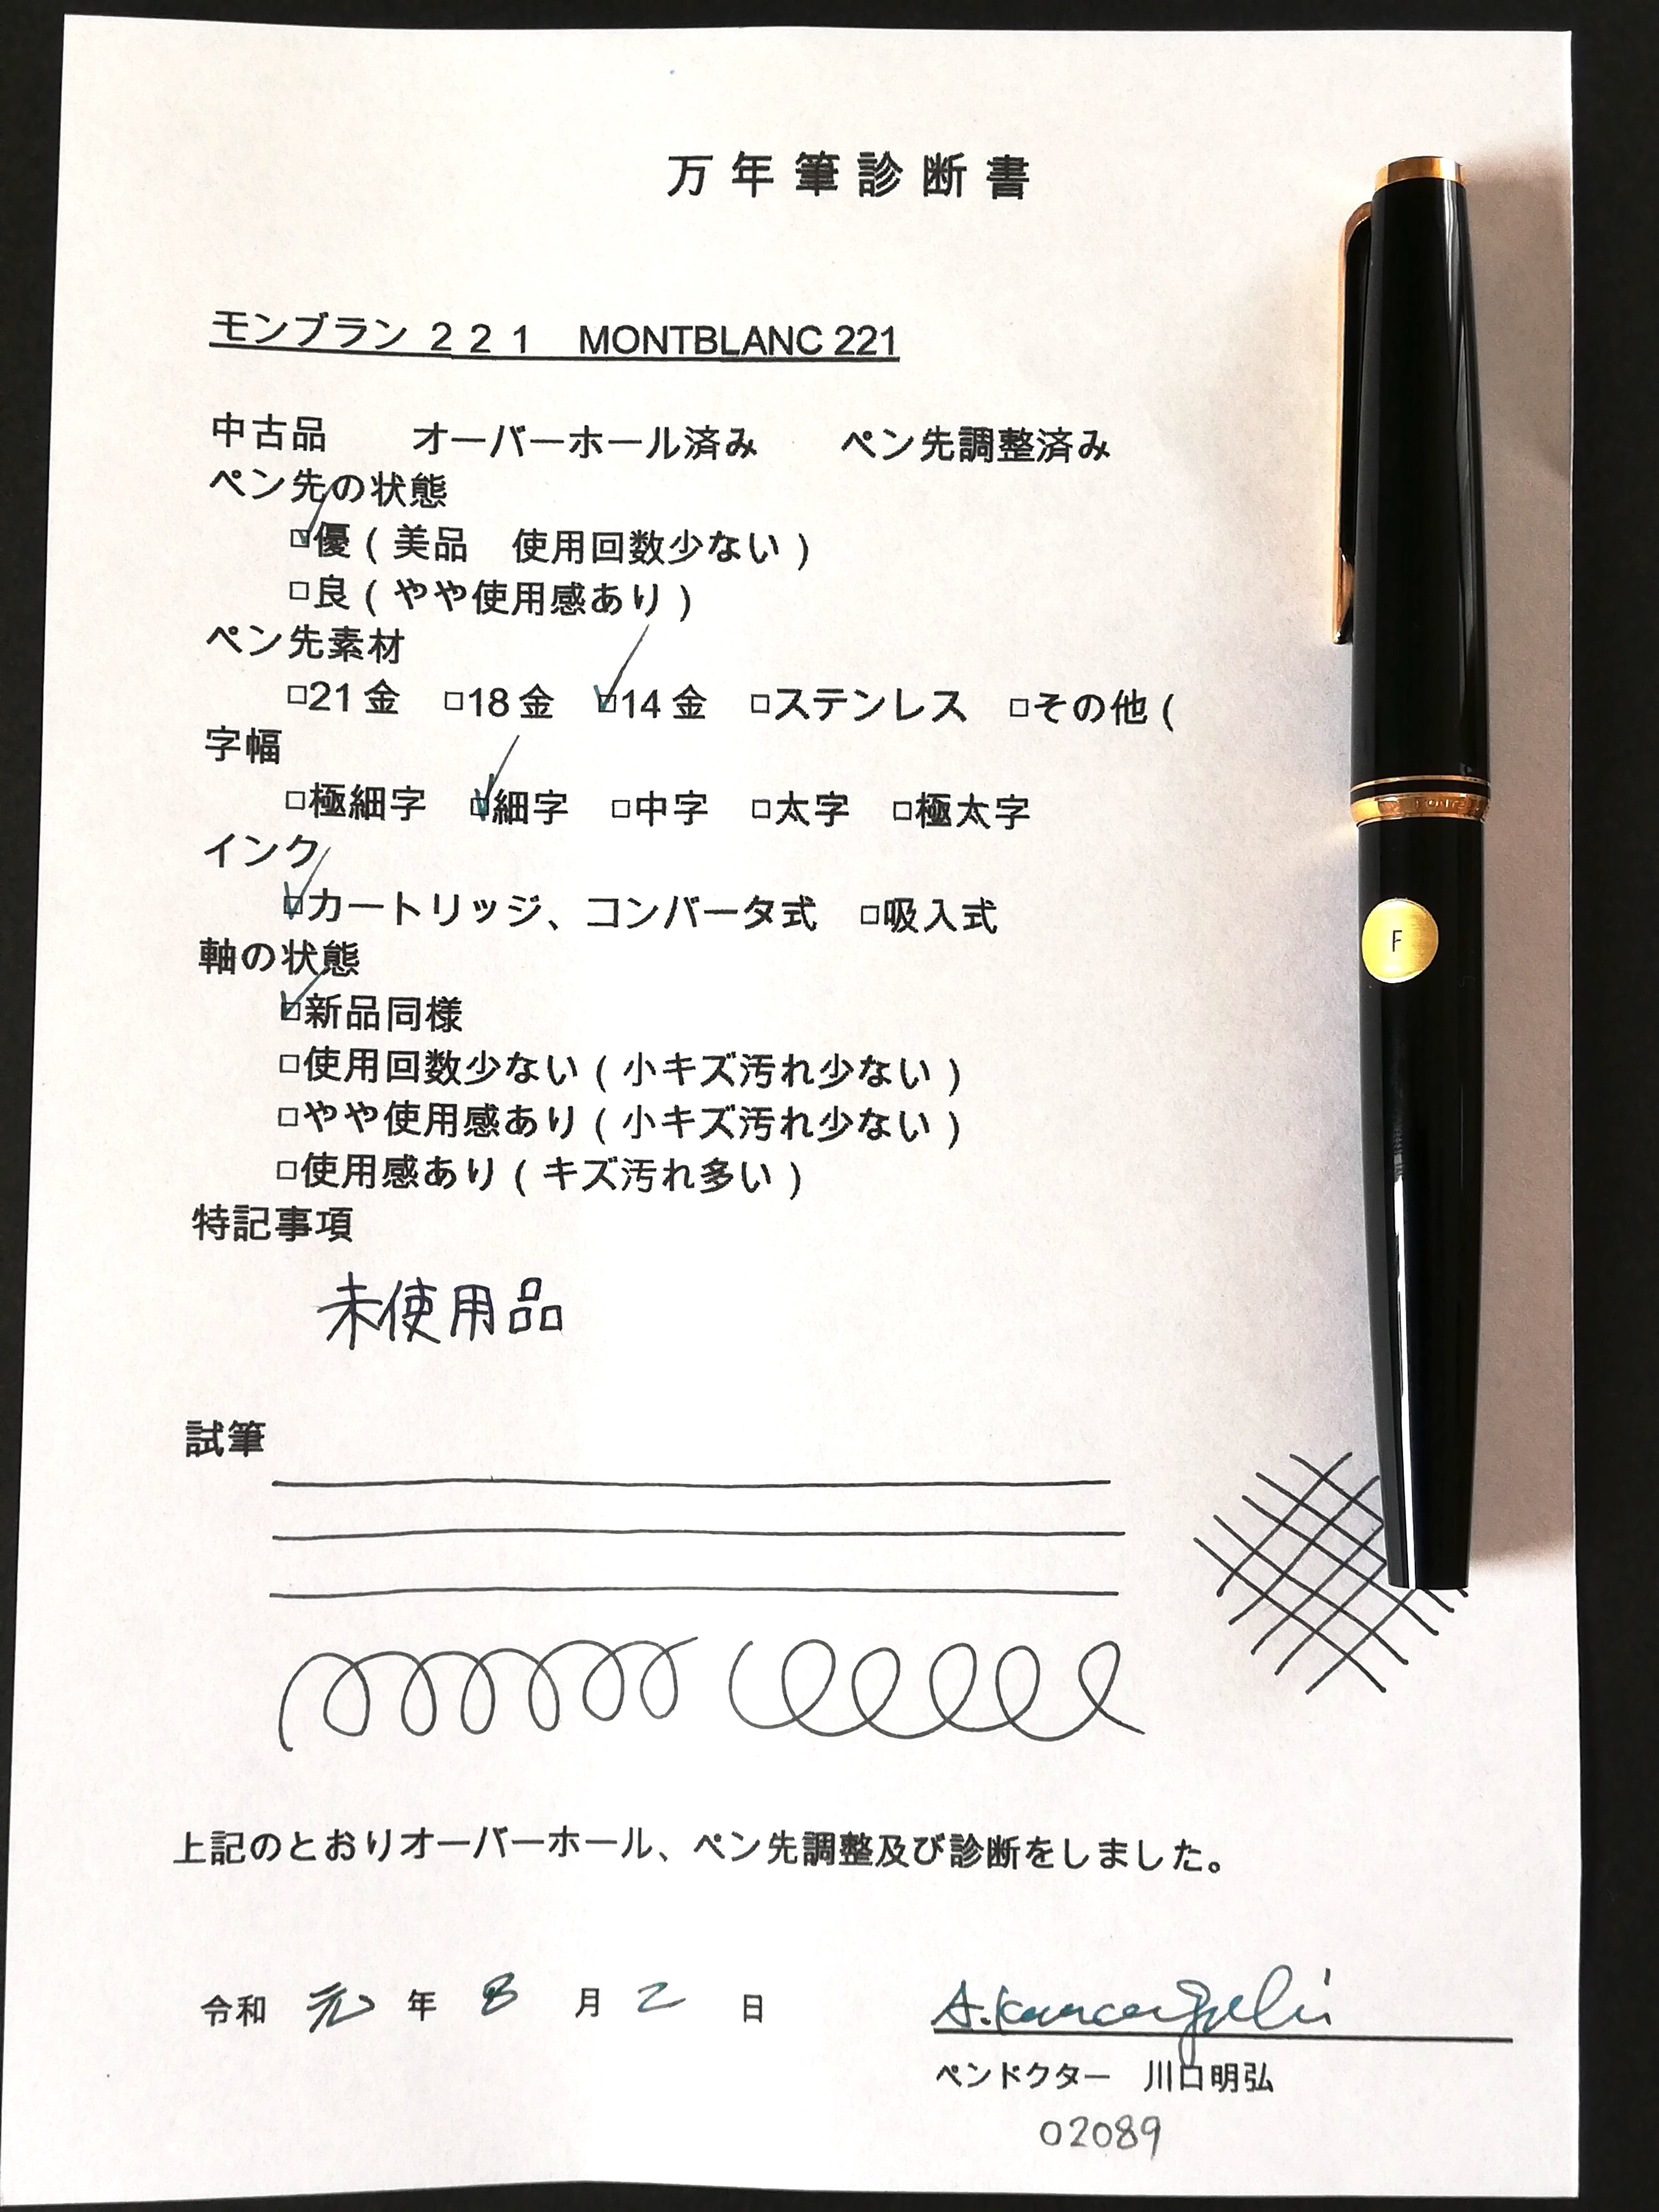 万年筆診断書
モンブラン ２２１　MONTBLANC 221
中古品　オーバーホール済み　ペン先調整済み
ペン先の状態
☑優（美品　使用回数少ない）
□良（やや使用感あり）
ペン先素材
□21金　□18金　☑14金　□ステンレス　□その他（
字幅
□極細字　☑細字　□中字　□太字　□極太字
インク
☑カートリッジ、コンバータ式　□吸入式
軸の状態
☑新品同様
□使用回数少ない（小キズ汚れ少ない）
□やや使用感あり（小キズ汚れ少ない）
□使用感あり（キズ汚れ多い）
特記事項
未使用品
試筆
上記のとおりオーバーホール、ペン先調整及び診断をしました。
令和 元 年 8 月 2 日
A.Kawaguchi
ペンドクター　川口明弘
02089
F